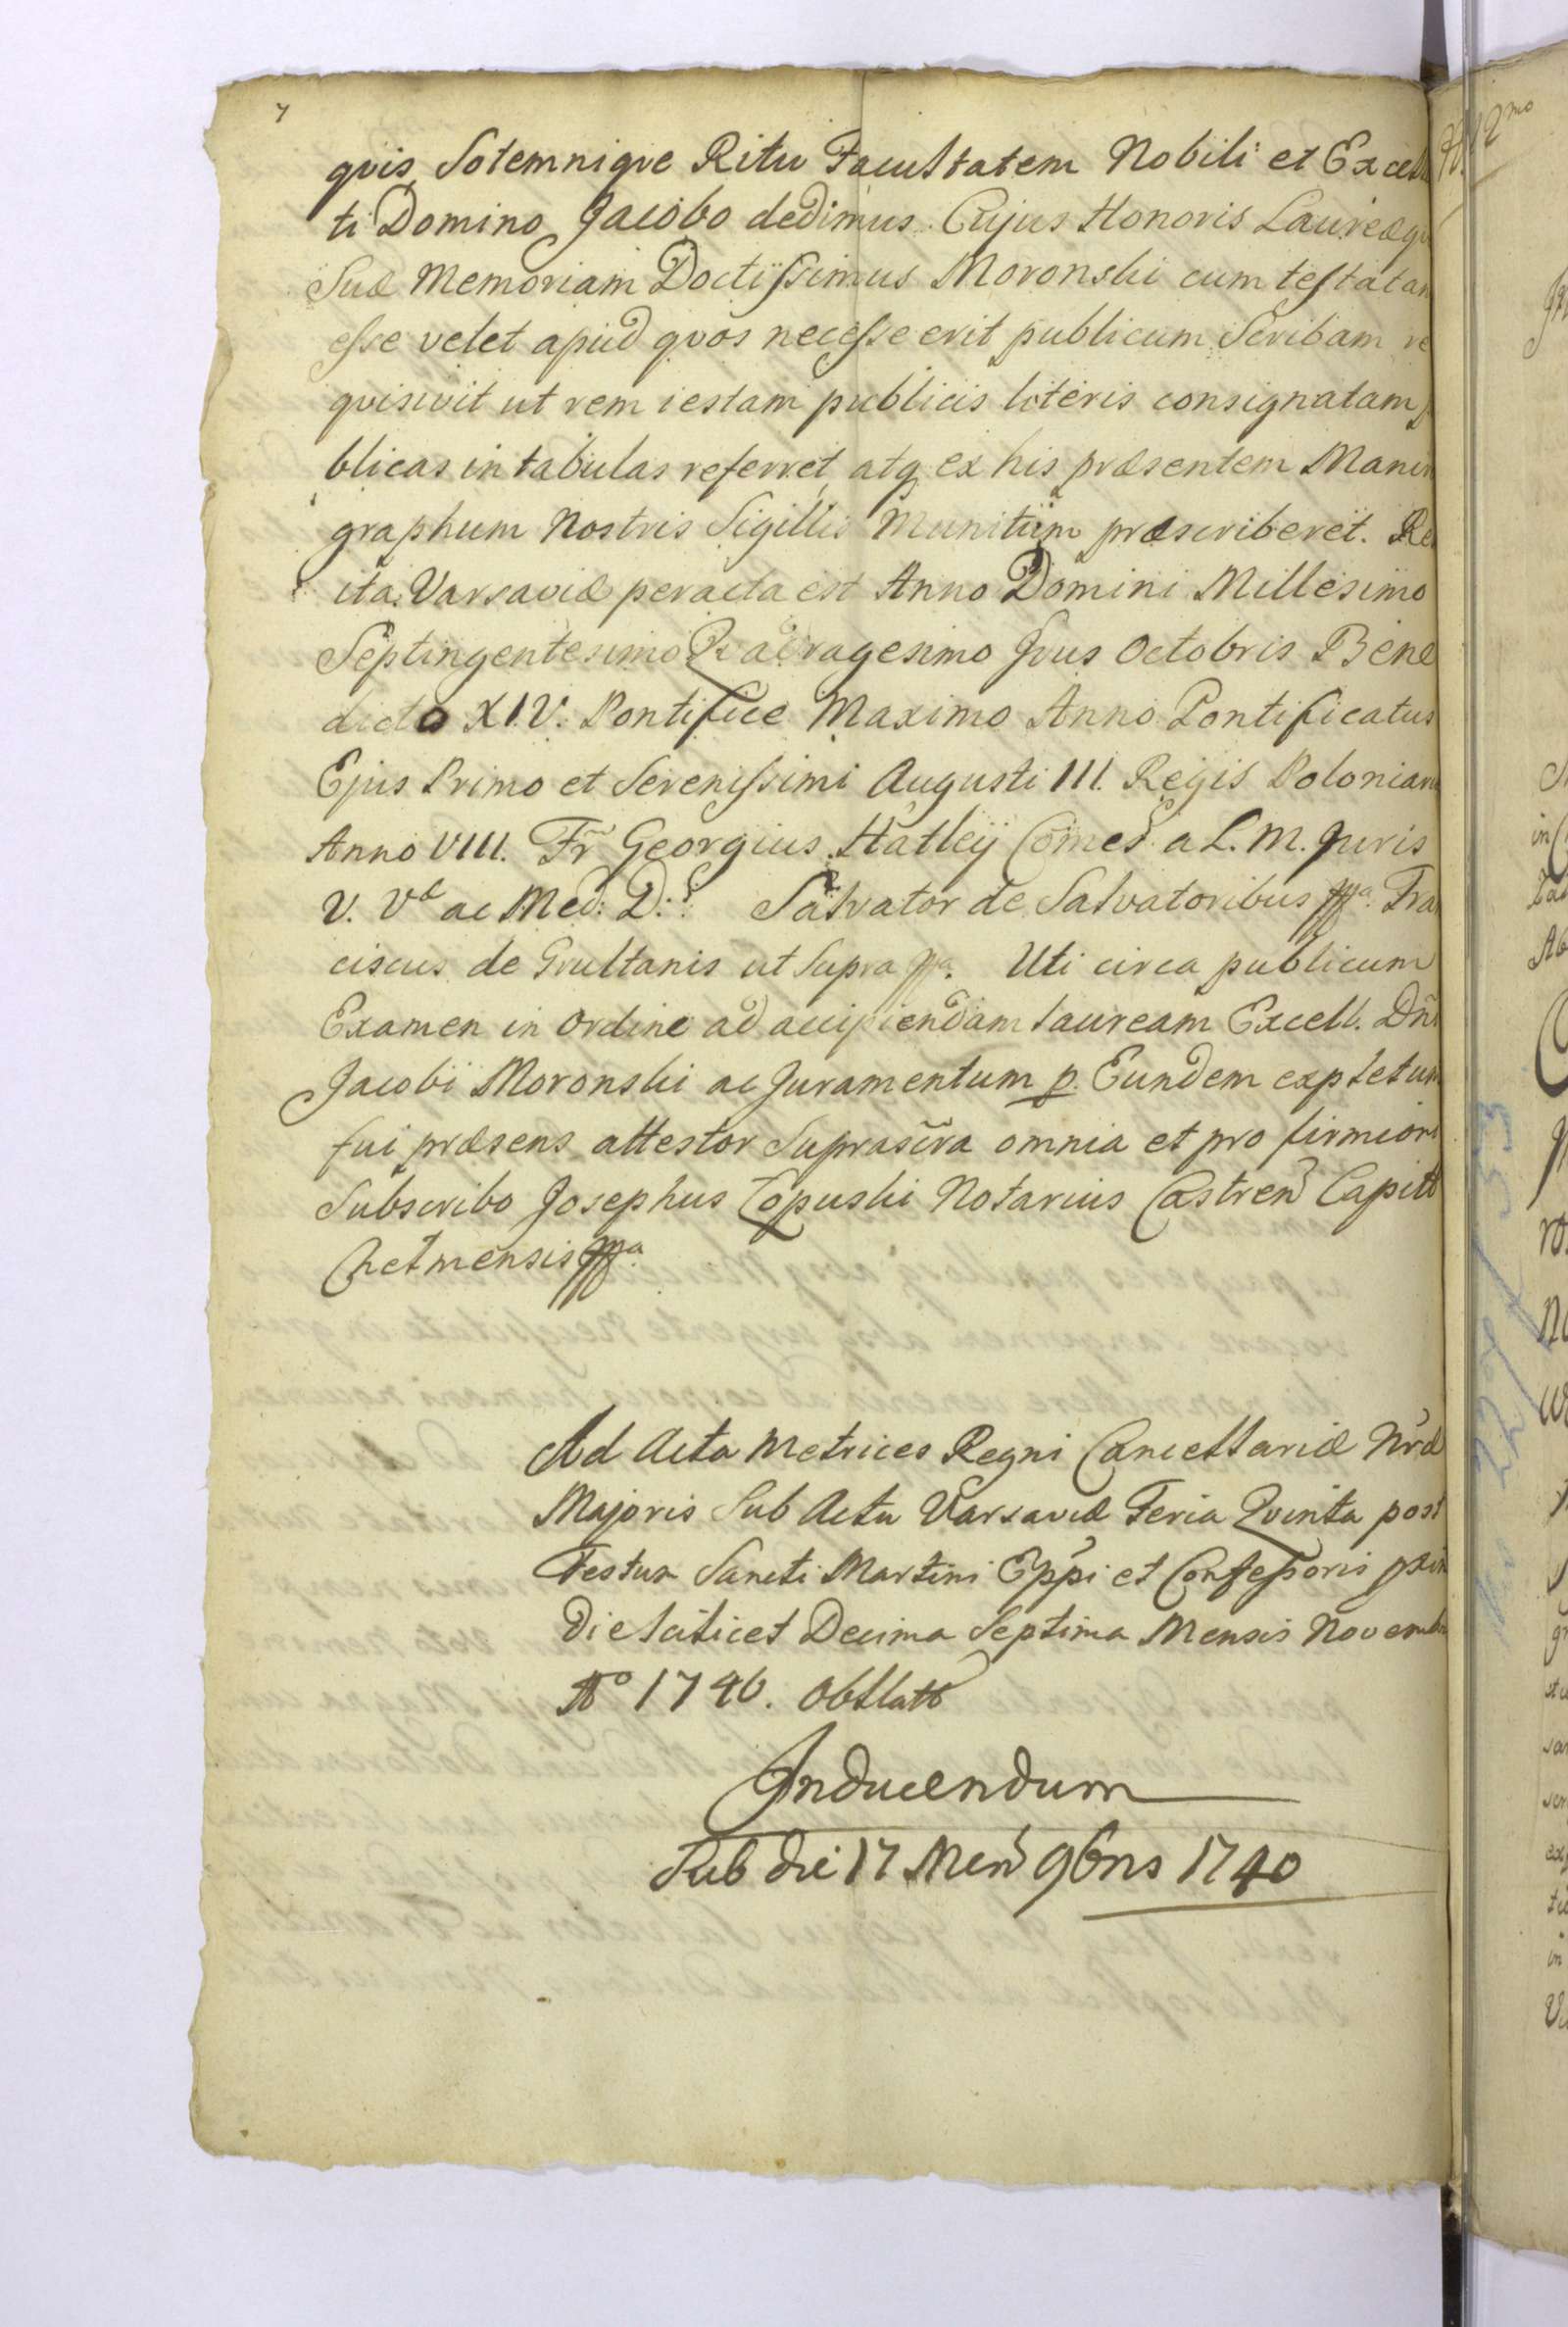 7
quis Solemnique Ritu Facultatem Nobili et Excell
ti Domino Jacobo dedimus. Cujus Honoris Laureæq
Suæ Memoriam Doctissimus Moronski cum testatam
esse velet apud quos necesse erit publicum Scribam re
quisivit ut rem iestam publicis literis consignatam p
blicas in tabulas referret, atq ex his præsentem Manu
graphum Nostris Sigillis Munitum præscriberet. Re
ita Varsaviæ peracta est Anno Domini Millesimo
Septingentesimo Quadragesimo Idus Octobris Bene
dicto XIV. Pontifice Maximo Anno Pontificatus
Ejus Primo et Serenissimi Augusti III. Regis Poloniaru
Anno VIII. Fr Georgius Hatley Comes a L. M. Juris
V. Vt ac Med: D:r Salvator de Salvatoribus mpa. Fra
ciscus de Grultanis ut Supra mpa. Uti circa publicum
Examen in Ordine ad accipiendam lauream Excell. Dni
Jacobi Moronski ac Juramentum p. Eundem expletum
fui præsens attestor Suprascra omnia et pro firmiori
Subscribo Josephus Łopuski Notarius Castren Capitl
Chelmensis mpa
Ad Acta Metrices Regni Cancellariæ Nræ
Majoris Sub Actu Varsaviæ Feria Quinta post
Festum Sancti Martini Eppi et Confessoris pxim
Die scilicet Decima Septima Mensis Novembr
Ao 1740. Obllatt
Inducendum
Sub die 17 Men 9bris 1740
12mo